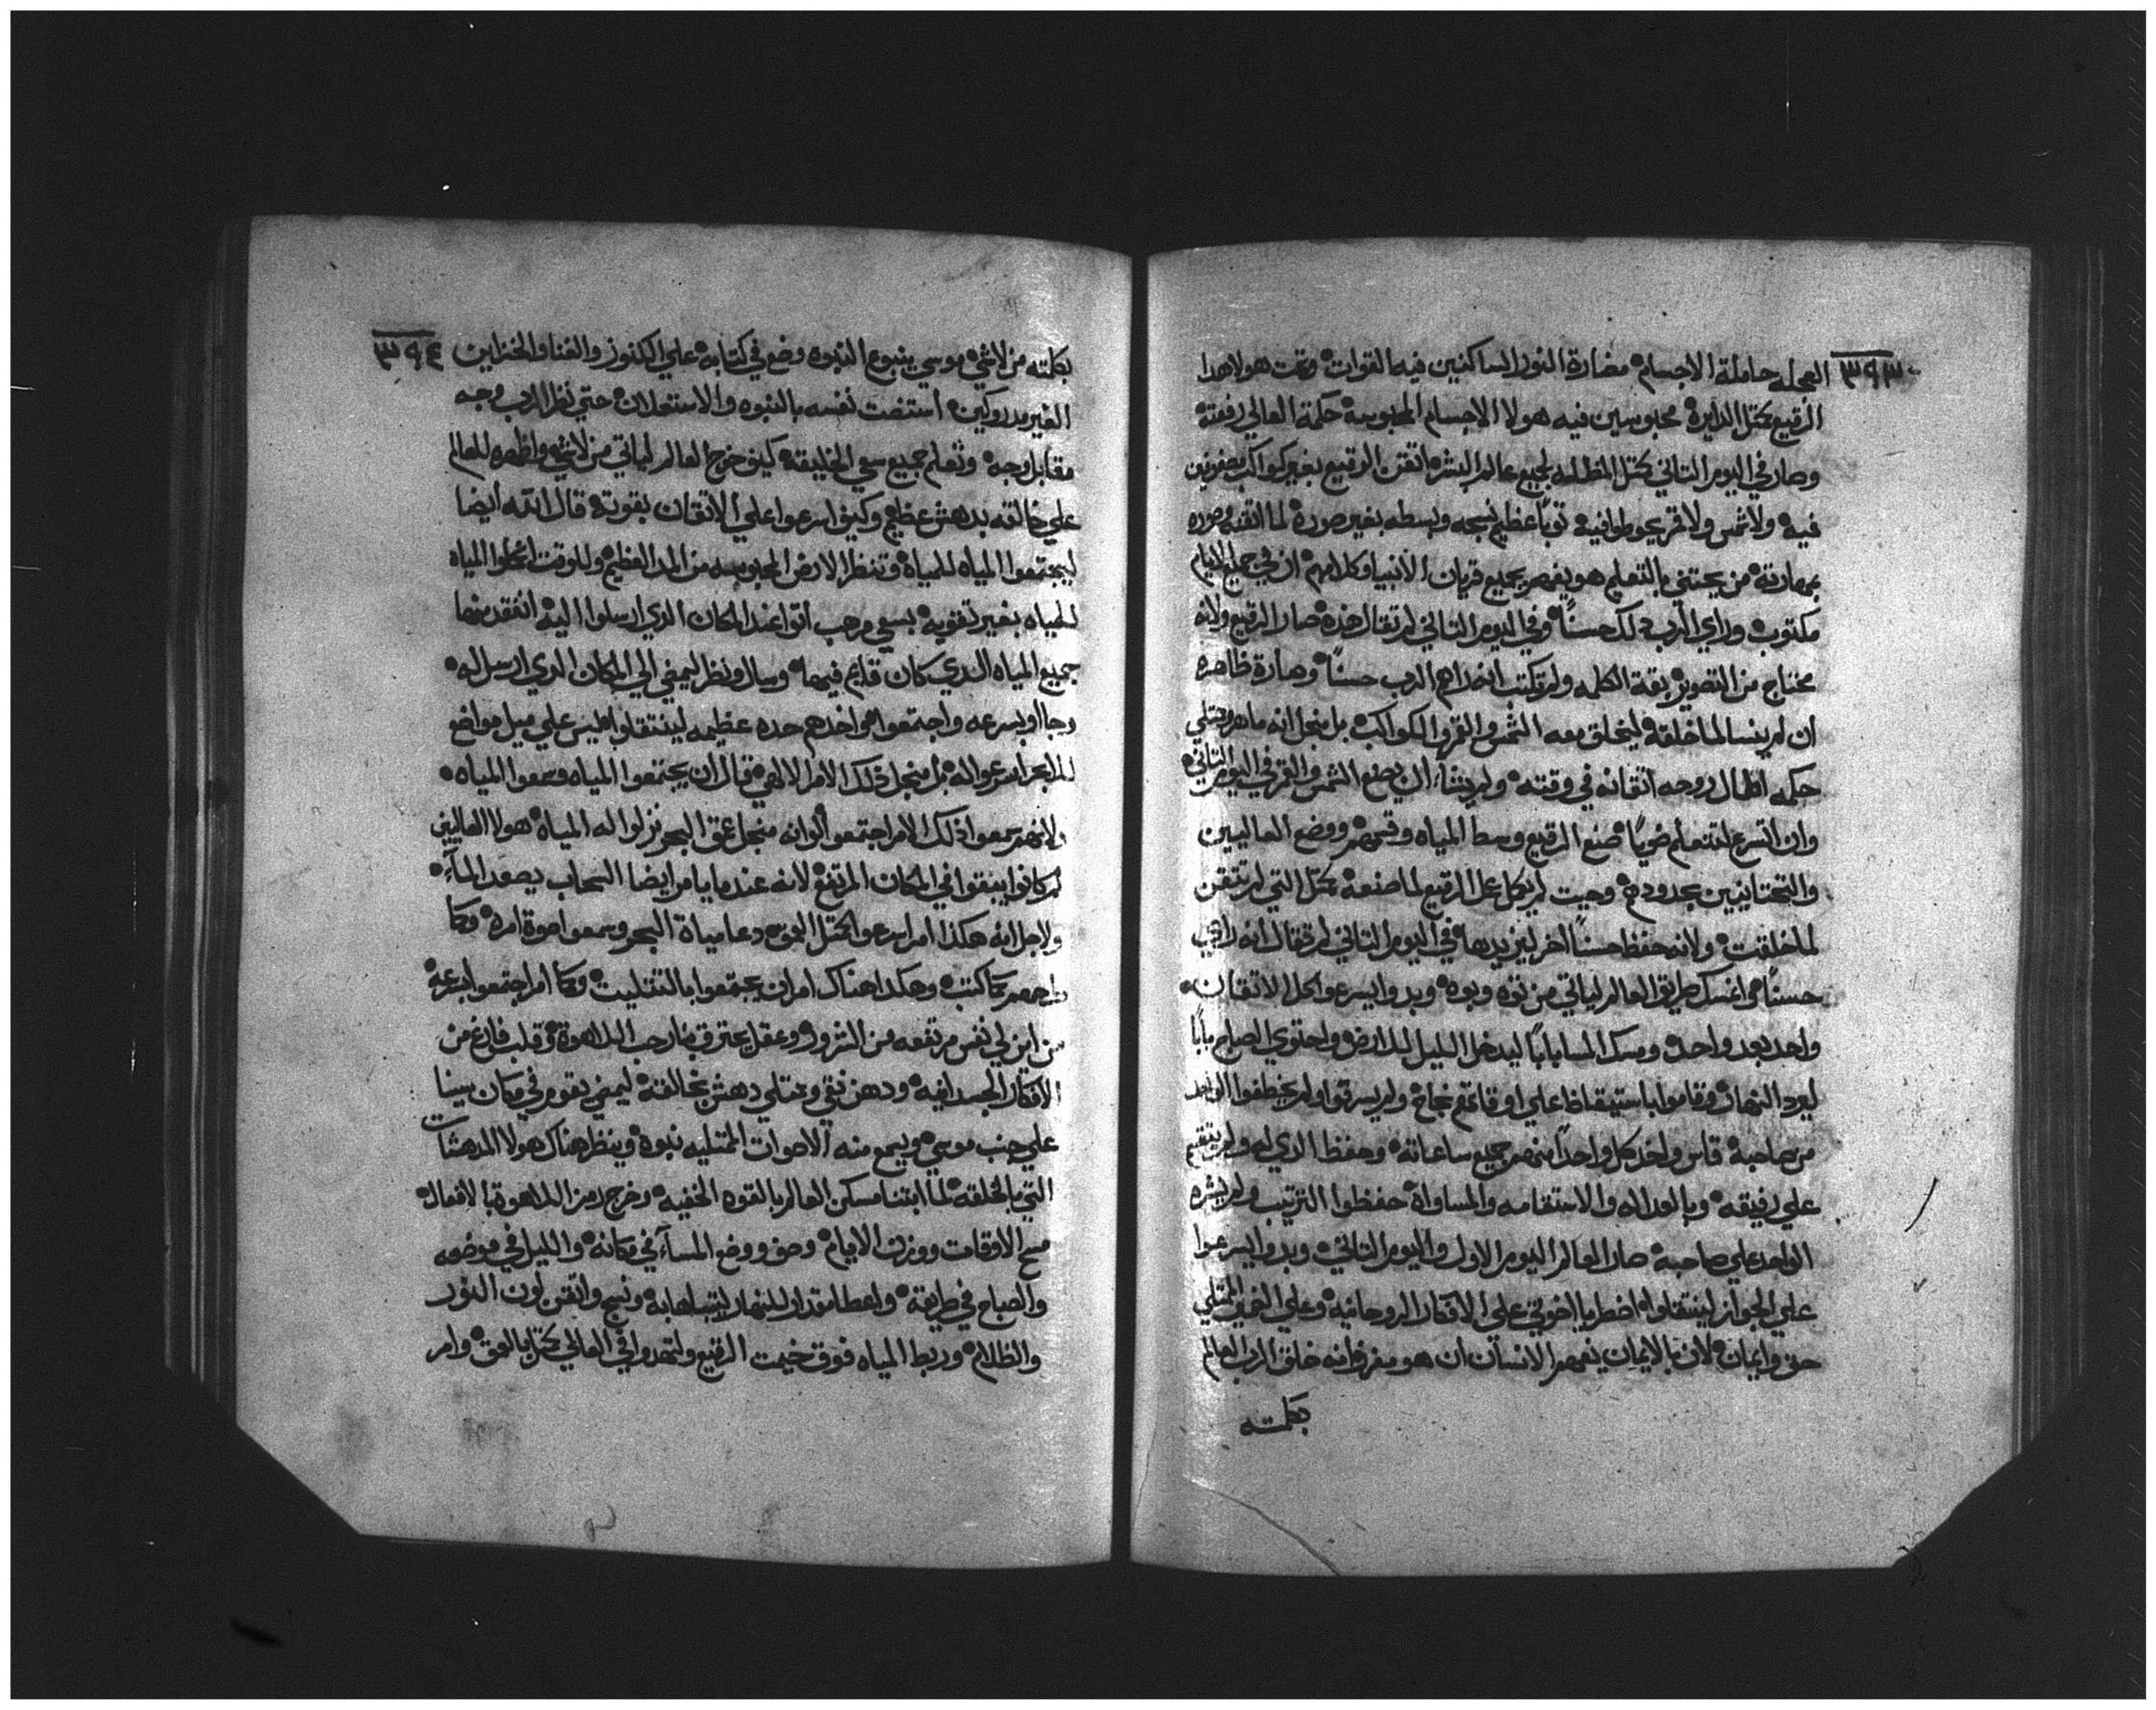 ٣٩٣
العجله حاملة الاجسام مضارة النور الساكنين فيه القوات وتمت هولا هدا
الرقيع كمتل الدايرة محبوسين فيه هولا الاجسام المحبوسة حكمة العالي رفعته
وصار في اليوم التاني كمتل المظله لجميع عالم البشر اتقن الرقيع بغير كواكب مصفوفين
فيه ولا شمس ولا قمر توبًا عظيم نسجه وبسطه بغير صورة لما اتقنه وصوره
بمهارته من يعتني بالتعليم هو يفهم جميع قريان الانبيا وكلامهم ان في جميع الايام
مكتوب وراي الرب دلك حسنًا وفي اليوم التاني لم تقال هذه صار الرقيع ولانه
محتاج من التصوير بقة الكلمه ولم تكتب انه راهم الرب حسنًا وصارة ظاهره
ان لم ينسا لما خلقه ليخلق معه الشمس والقمر والكواكب بل منجل انه ماهر وممتلي
حكمه اطال روحه اتقانه في وقته ولم يشاء ان يصنع الشمس والقمر في اليوم التاني
وان اتسرع لتتعلم ضويًا صنع الرقيع وسط المياه وقسمهم ووضع العاليين
والتحتانيين بحدودهم وحيت لم يكمل عمل الرقيع لما صنعه كمتل التي لم تتقن
لما خلقت ولانه حفظ حسنًا اخر ليزيدها في اليوم التاني لم تقال انه راهي
حسنًا وامسك طريق العالم لياتي من توه وبوه وبدوا يسرعوا كل الاتقان
واحد بعد واحد ومسك المسا بابًا ليدخل الليل للارض واحتوي الصباح بابًا
ليرد النهار وقاموا باستيقاظ علي اوقاتهم نجاح ولم يسرقوا ولم يخطفوا الواحد
من صاحبه قاس واخد كل واحدًا منهم جميع ساعاته وحفظ الدي له ولم يتقتم
علي رفيقه وبالعداله والاستقامه والمساواة حفظوا الترتيب ولم يشره
الواحد علي صاحبه صار العالم اليوم الاول واليوم التاني وبدوا يسرعوا
علي الجواز لينتقلوا اضطربا اخوتي علي الافكار الروحانيه وعلي الضمير الممتلي
حق وايمان لان بالايمان يفهم الانسان ان هو مفرز انه خلق الرب العالم
بكلمته
٣٩٤
بكلمته من لاشي موسي ينبوع النبوه وضع في كتابه علي الكنوز والغنا والخزاين
الغير مدروكين استضت نفسه بالنبوه والاستعلان حتي نظر الرب وجه
مقابل وجه وتعلم جميع سعي الخليقه كيف خرج العالم لياتي من لاشي واظهره للعالم
علي خالقه بدهش عظيم وكيف اسرعوا علي الاتقان بقوته قال الله ايضا
ليجتمعوا المياه للمياه وتنظر الارض المحبوسه من المد العظيم وللوقت اعجلوا المياه
للمياه بغير تعويه بسعي مرهب اتوا عند المكان الدي ارسلوا اليه انفقد منها
جميع المياه الدي كان قايم فيها وسار ونظر ليمضي الي المكان الدي ارسل له
رجا او بسرعه واجتمعوا واخدهم حده عظيمه لينتقلوا ليس علي ميل مواضع
للبحر اسرعوا له بل منجل ذلك الامر الالهي قال ان يجتمعوا المياه وسمعوا المياه
ولانهم سمعوا ذلك الامر اجتمعوا الوانه منجل عمق البحر نزلوا له المياه هولا العاليين
لم كانوا يبقوا في المكان المرتفع لانه عندما يامر ايضا السحاب يصعد المآء
ولاجل انه هكذا امر اسرعوا كمتل العمق دعا مياه البحر وسمعوا صوة امره وكما
طلعهم كما كتب وهكدا هناك امر ان يجتمعوا بالتتليت وكما امر اجتمعوا بسرعه
من اين لي نفس مرتفعه من الشرور وعقل يعترق بضارحب اللاهوة وقلب فارغ من
الافكار الجسدانيه ودهن نقي وممتلي دهش بخالقه ليمضي يقوم في مكان سينا
علي جنب موسي ويسمع منه الاصوات الممتليه نبوة وينظر هناك هولا المدهشات
التي بالخلقه لما ابتنا مسكن العالم بالقوه الخفيه وخرج رمز اللاهوة بالافعال
مسح الاوقات ووزن الايام وصف ووضع المساء في مكانه والليل في موضعه
والصباح في طريقه واعطا مقدار للنهار ليتباها به ونسج واتقن لون النور
والظلام وربط المياه فوق خيمت الرقيع ولتهدوا في العالي كمتل بالعمق وامر